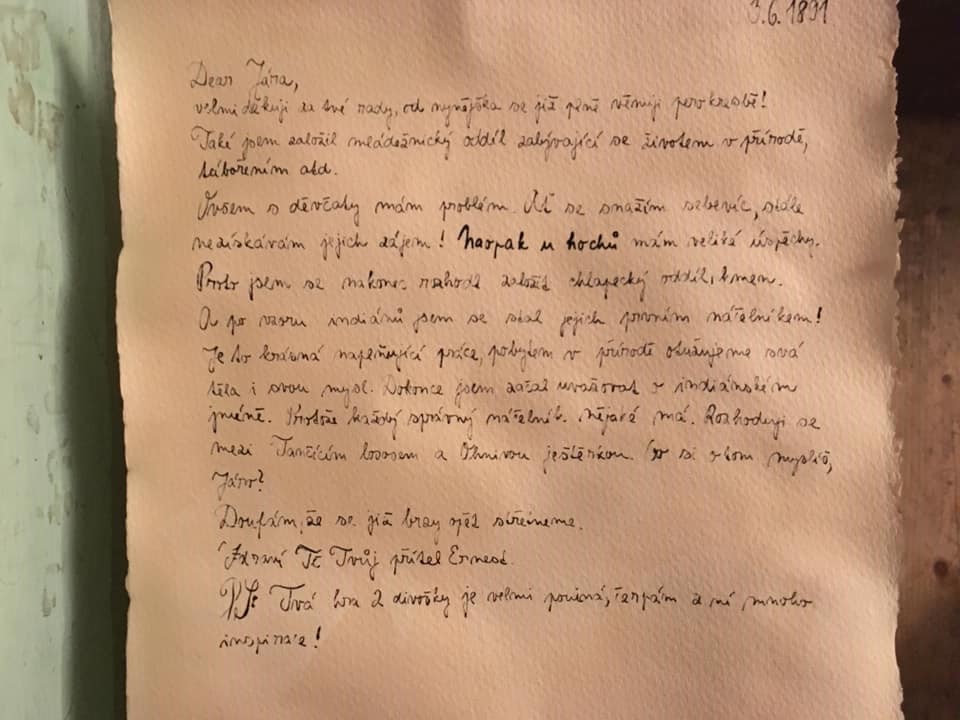 3.6.1891
Dear Jára,
velmi děkuji za tvé rady, od nynějška se již plně věnuji perokresbě!
Také jsem založil mládežnický oddíl zabývající se životem v přírodě,
tábořením atd.
Ovšem s děvčaty mám problém. Ať se snažím sebevíc, stále
nezískávám jejich zájem! Naopak u hochů mám veliké úspěchy.
Proto jsem se nakonec rozhodl založit chlapecký oddíl, kmen.
A po vzoru indiánů jsem se stal jejich prvním náčelníkem!
Je to krásná naplňující práce, pobytem v přírodě otužujeme svá
těla i svou mysl. Dokonce jsem začal uvažovat o indiánském
jméně. Protože každý správný náčelník nějaké má. Rozhoduji se
mezi Tančícím lososem a Ohnivou ještěrkou. Co si o tom myslíš,
Járo?
Doufám, že se již brzy opět střetneme.
Zdraví Tě Tvůj přítel Ernest.
P.S: Tvá hra 2 divošky je velmi poučná, čerpám z ní mnoho
inspirace!